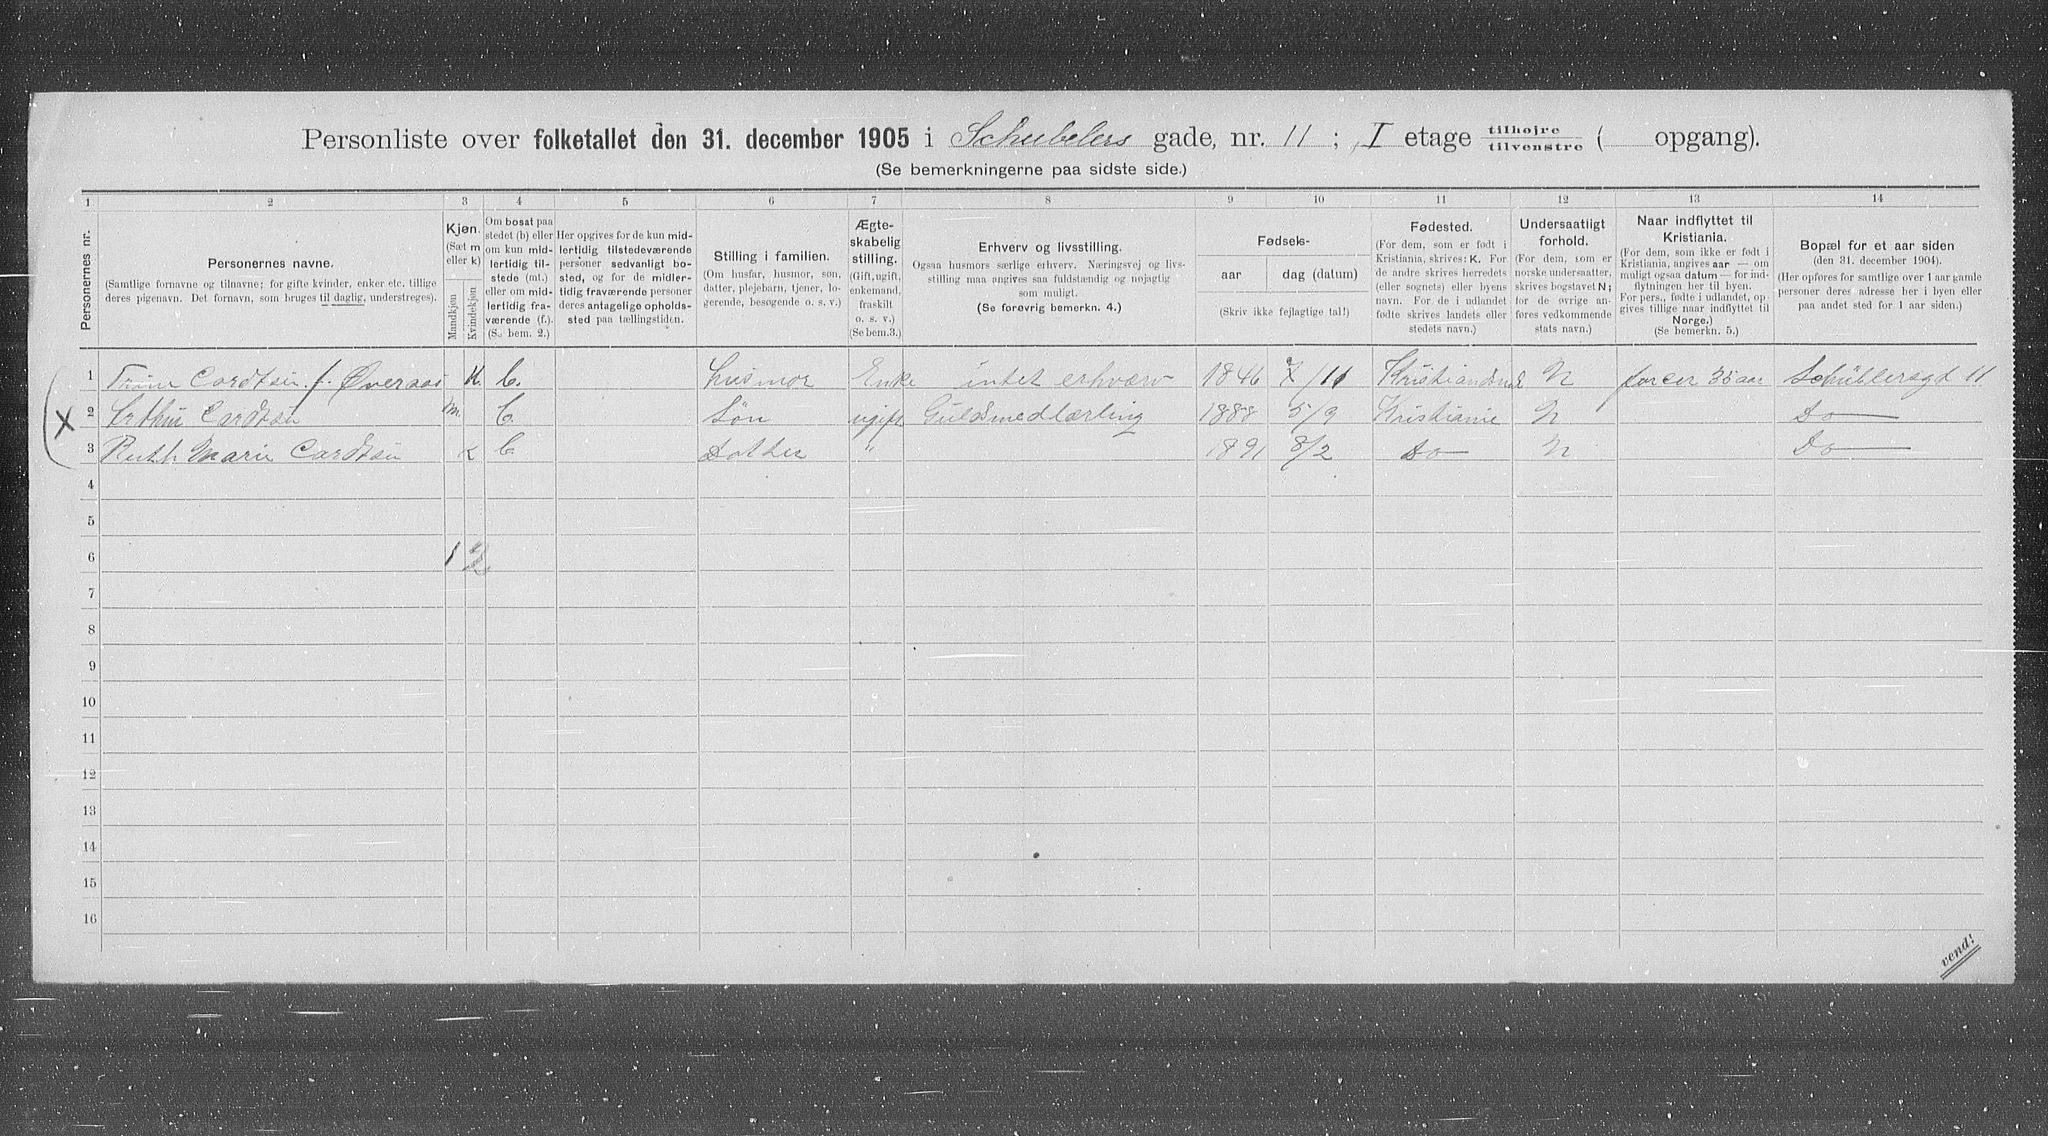 Personliste over folketallet den 31. december 1905 i Schubelers gade, nr. 11 ; I etage tilhøjre tilvenstre ( opgang).
(Se bemerkningerne paa sidste side.)
1 2 3 4 5 6 7 8 9 10 11 12 13 14
Personernes nr.
Personernes navne.
(Samtlige fornavne og tilnavne; for gifte kvinder, enker etc. tillige
deres pigenavn. Det fornavn, som bruges til daglig, understreges).
Kjøn.
(Sæt m
eller k)
Mandkjøn
Kvindekjøn
Om bosat paa
stedet (b) eller
om kun mid-
lertidig til-
stede (mt.)
eller om mid-
lertidig fra-
værende (f.).
(Se bem. 2.)
Her opgives for de kun mid-
lertidig tilstedeværende
personer sedvanligt bo-
sted, og for de midler-
tidig fraværende personer
deres antagelige opholds-
sted paa tællingstiden.
Stilling i familien.
(Om husfar, husmor, søn,
datter, plejebarn, tjener, lo-
gerende, besøgende o. s. v.)
Ægte-
skabelig
stilling.
(Gift, ugift,
enkemand,
fraskilt
o. s. v.)
(Se bem. 3.)
Erhverv og livsstilling.
Ogsaa husmors særlige erhverv. Næringsvej og livs-
stilling maa angives saa fuldstændig og nøjagtig
som muligt.
(Se forøvrig bemerkn. 4.)
Fødsels-
aar dag (datum)
(Skriv ikke fejlagtige tal!)
Fødested.
(For dem, som er født i
Kristiania, skrives: K. For
de andre skrives herredets
(eller sognets) eller byens
navn. For de i udlandet
fødte skrives landets eller
stedets navn.)
Undersaatligt
forhold.
(For dem, som er
norske undersaatter,
skrives bogstavet N;
for de øvrige an-
føres vedkommende
stats navn.)
Naar indflyttet til
Kristiania.
(For dem, som ikke er født i
Kristiania, angives aar — om
muligt ogsaa datum — for ind-
flytningen her til byen.
For pers., fødte i udlandet, op-
gives tillige naar indflyttet til
Norge.)
(Se bemerkn. 5.)
Bopæl for et aar siden
(den 31. december 1904).
(Her opføres for samtlige over 1 aar gamle
personer deres adresse her i byen eller
paa andet sted for 1 aar siden.)
1 Cardtsen f. Øveraas K. b. husmor Enke intet erhværv 1846 /11 Kristiansund N for cer 35 aar Schüblersgd 11
X 2 Arthur Cardtsen m. b. Søn ugift Guldsmedlærling 1888 5/9 Kristiania N Do
3 Ruth Marie Cardtsen k b Datter " 1891 8/2 Do N Do
4
5
6 1 2
7
8
9
10
11
12
13
14
15
16
vend!